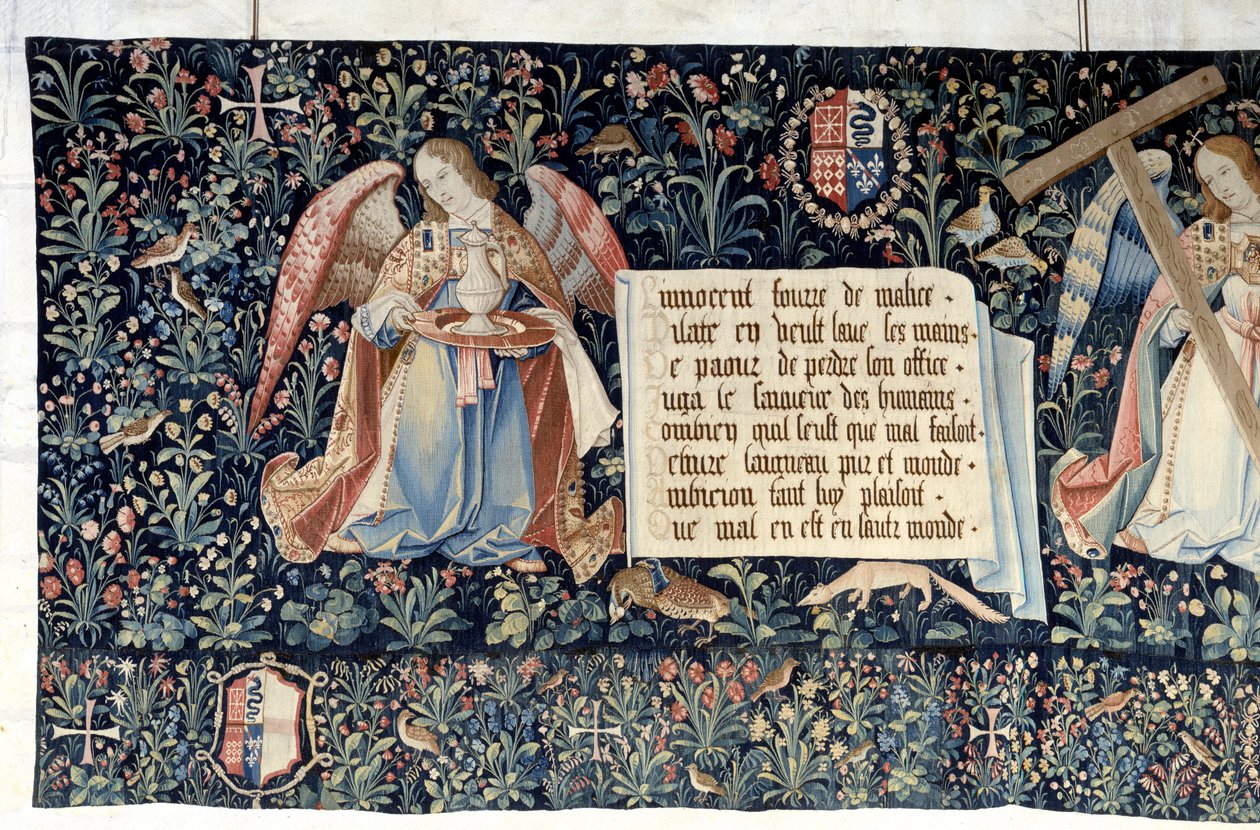 Linnocent fourre de malice ·
Pilate en veult lave ses mains ·
De paour de perdre son office ·
Juga le sauueur des humains ·
Combien quil seust que mal faisoit ·
laigneau pur et monde ·
Ambicion tant luy plaisoit ·
Que mal en est en lautr monde ·